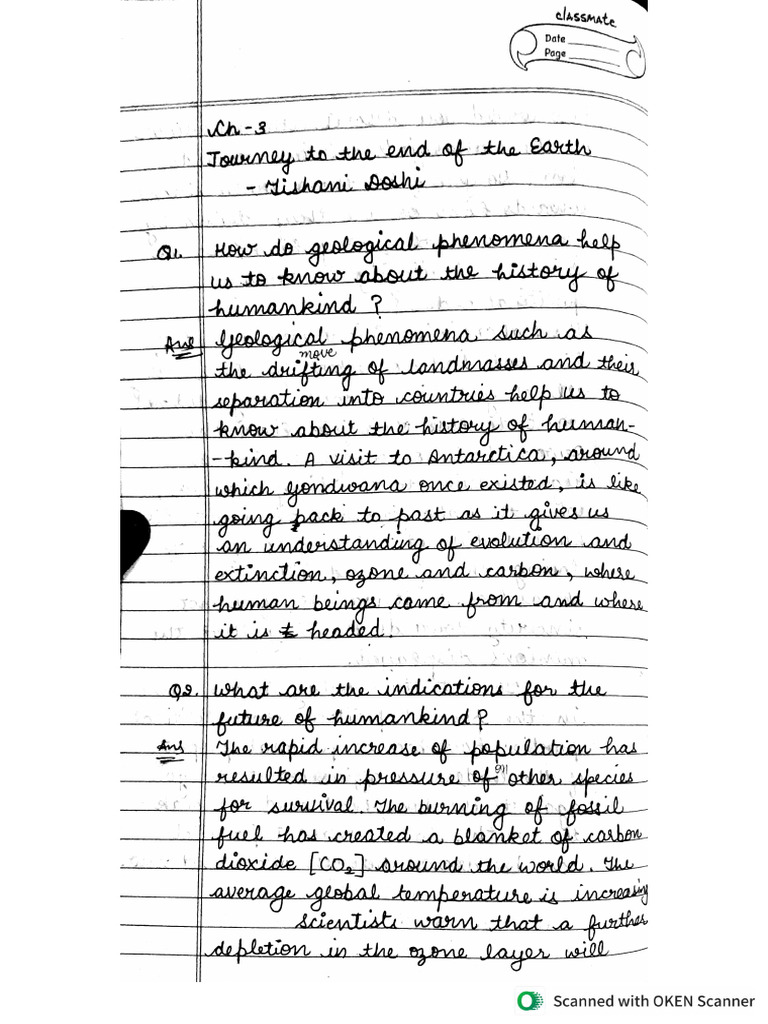 classmate
Date
Page
Ch-3
Journey to the end of the Earth
- Tishani Doshi
Q1. How do geological phenomena help
us to know about the history of
humankind ?
Ans Geological phenomena such as
move
the drifting of landmasses and their
separation into countries help us to
know about the history of human-
-kind. A visit to Antarctica, around
which Gondwana once existed, is like
going pack to past as it gives us
an understanding of evolution and
extinction, ozone and carbon, where
human beings came from and where
it is t headed.
Q2. What are the indications for the
future of humankind?
Ans The rapid increase of population has
resulted in pressure of on other species
for survival. The burning of fossil
fuel has created a blanket of carbon
dioxide [CO₂] around the world. The
average global temperature is increasing
scientists warn that a further
depletion in the ozone layer will
Scanned with OKEN Scanner